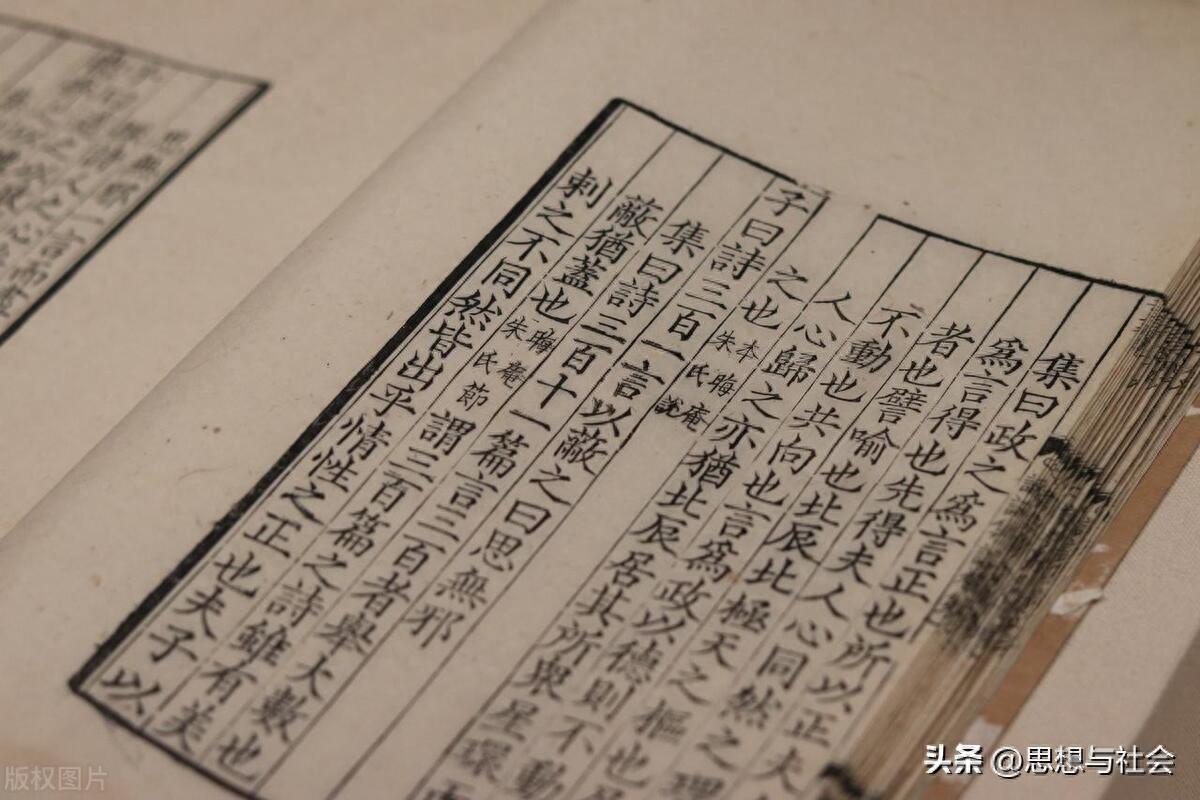 集曰政之為言正也所以正夫
為言得也先得夫人心同然之理
者也譬喻也北辰北極天之樞也居
不動也共向也言為政以德則不動
人心歸之亦猶北辰居其所眾星環
之也本晦庵朱氏說
子曰詩三百一言以蔽之曰思無邪
集曰詩三百十一篇言三百者舉大數也
蔽猶蓋也晦庵朱氏節謂三百篇之詩雖有美
刺之不同然皆出乎情性之正也夫子以
思無邪一言而
版权图片
头条 @思想与社会